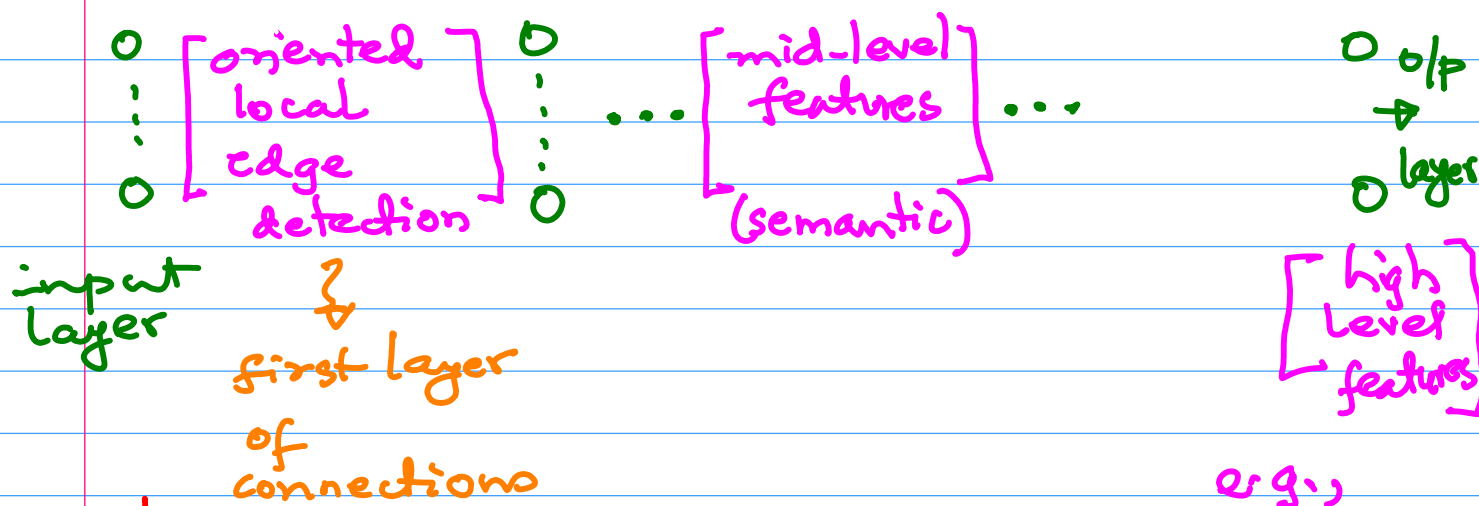 [oriented
local
edge
detection]
[mid-level
features]
(semantic)
o/p
layer
input
layer
first layer
of
connections
[high
level
features]
e.g.,